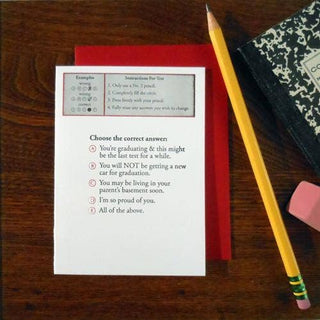 Examples
Instructions For Test
wrong
1. Only use a No. 2 pencil.
2. Completely fill the circle.
wrong
3. Press firmly with your pencil.
correct
4. Fully erase any answer you wish to change
Choose the correct answer:
A You're graduating & this might
be the last test for a while.
B You will NOT be getting a new
car for graduation.
C You may be living in your
parent's basement soon.
D I'm so proud of you.
E All of the above.